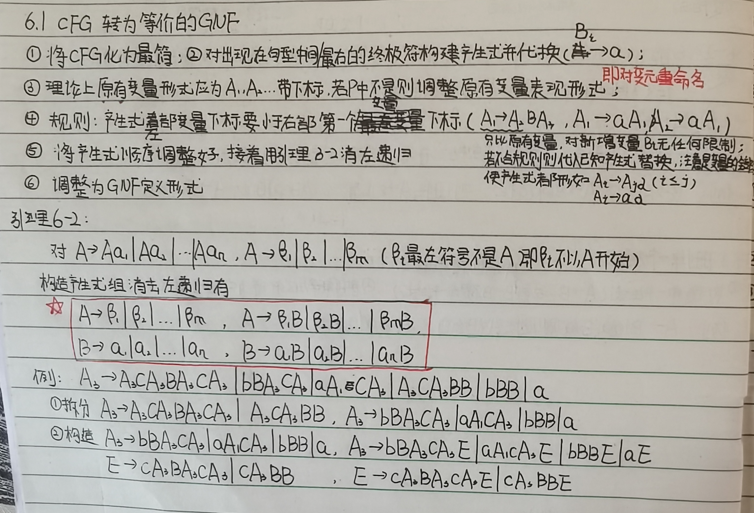 6.1 CFG 转为等价的GNF
① 将CFG化为最简；② 对出现在句型中间最右的终极符构建产生式并代换(Bi→a)；
③ 理论上原有变量形式应为A₁,A₂...带下标,若P中不是则调整原有变量表现形式；即对变元重命名
④ 规则：产生式左部变量下标要小于右部第一个变量下标 (A₁→A₂BA₃, A₁→aA₁, A₂→aA₁)
只比原有变量,对新增变量Bi无任何限制；
若不合规则则代入已知产生式替换,注意是变量的
使产生式都形如 Ai→Ajα (i≤j)
Ai→aα
⑤ 将产生式顺序调整好,接着用引理6-2消左递归
⑥ 调整为GNF定义形式
引理6-2：
对 A→Aα₁|Aα₂|…|Aαn, A→β₁|β₂|…|βm (βi最左符号不是A即βi不以A开始)
构造产生式组消去左递归有
☆ A→β₁|β₂|…|βm , A→β₁B|β₂B|…|βmB,
B→α₁|α₂|…|αn , B→α₁B|α₂B|…|αnB
例：A₃→A₃CA₃BA₃CA₃|bBA₃CA₃|aA₁CA₃|A₃CA₃BB|bBB|a
①拆分 A₃→A₃CA₃BA₃CA₃|A₃CA₃BB, A₃→bBA₃CA₃|aA₁CA₃|bBB|a
②构造 A₃→bBA₃CA₃|aA₁CA₃|bBB|a, A₃→bBA₃CA₃E|aA₁CA₃E|bBBE|aE
E→CA₃BA₃CA₃|CA₃BB , E→CA₃BA₃CA₃E|CA₃BBE